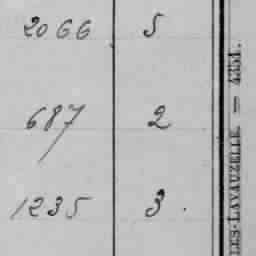 2066 5
687 2
1235 3.
LES-LAVAUZELLE. — 4351.